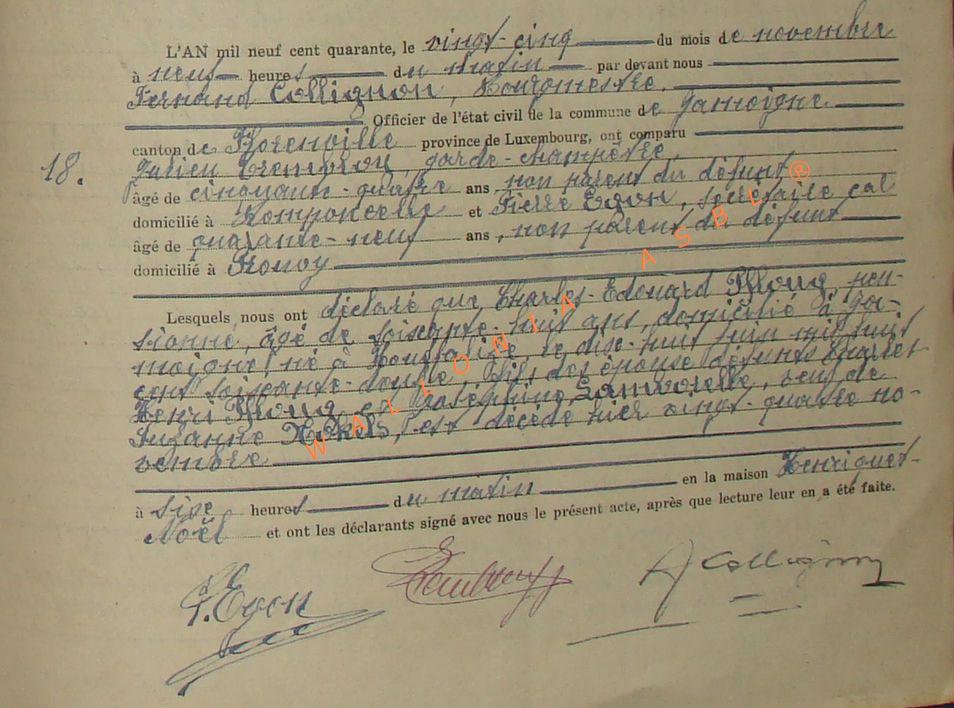 L'AN mil neuf cent quarante, le vingt-cinq du mois de novembre
à neuf heures du matin par devant nous
Fernand Collignon, Bourgmestre.
Officier de l'état civil de la commune de Jamoigne.
canton de Florenville province de Luxembourg, ont comparu
18. garde-champêtre,
âgé de cinquante-quatre ans, non parent du défunt
domicilié à Romponcelle et Pierre Egon, secrétaire cal
âgé de quarante-neuf ans, non parent du défunt
domicilié à Prouvy
Lesquels nous ont déclaré que Charles-Edouard pen-
sionné, âgé de soixante-huit ans, domicilié à Ja-
moigne, né à Houffalize, le dix-huit juin mil huit
cent soixante-douze, fils des époux défunts Charles
Henri et Joséphine Lamborelle, veuf de
Suzanne est décédé hier vingt-quatre no-
vembre
à six heures du matin en la maison Henriquet-
Noël et ont les déclarants signé avec nous le présent acte, après que lecture leur en a été faite.
P. Egon Collignon
WALLONIA ASBL ®